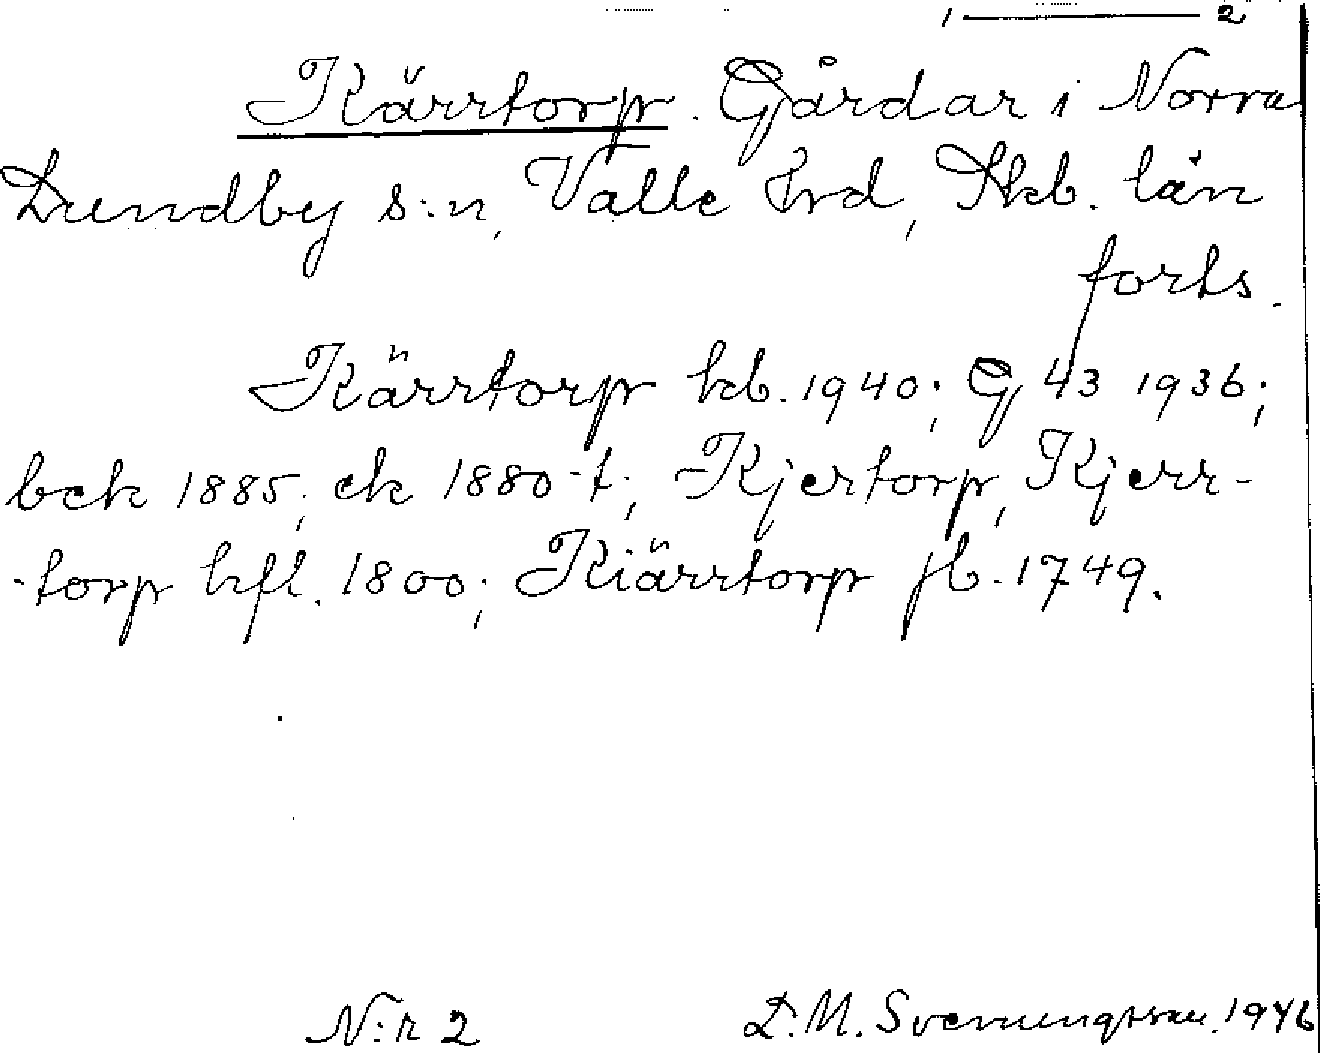 1 — 2
Kärrtorp. Gårdar i Norra
Lundby s:n, Valle hrd, Skb. län
forts.
Kärrtorp kb. 1940; G 43 1936;
bek 1885; ek 1880-t; Kjertorp, Kjerr-
-torp hfl. 1800; Kiärrtorp jb. 1749.
N:r 2 L. M. Svenungsson. 1946